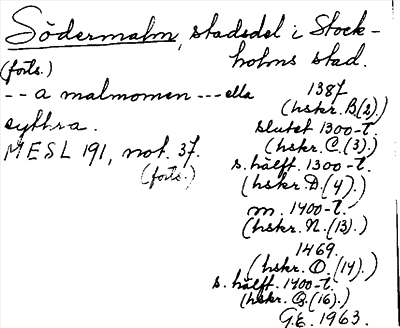 Södermalm, stadsdel i Stock-
(forts.) holms stad.
-- a malmomen --- ella 1387
(hskr. B.(2).)
cythra. slutet 1300-t.
(hskr. C.(3).)
MESL 191, not. 37. s. hälft. 1300-t.
(forts.) (hskr. D.(4).)
m. 1400-t.
(hskr. N.(13).)
1469.
(hskr. O.(14).)
s. hälft. 1400-t.
(hskr. Q.(16).)
G.E. 1963.